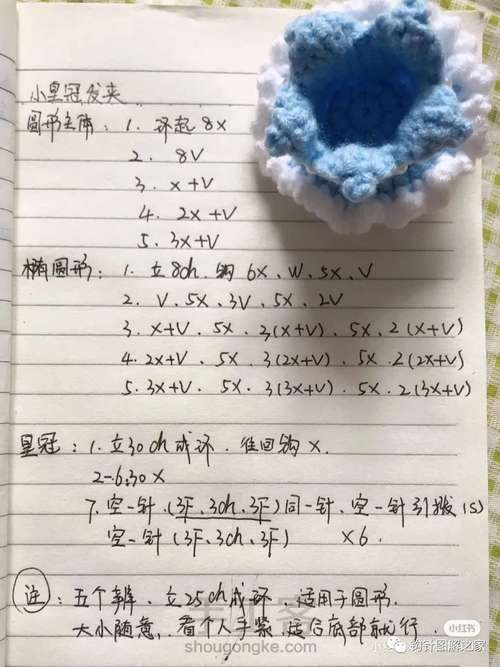 小皇冠发夹
圆形主体：1. 环起8X
2. 8V
3. X+V
4. 2X+V
5. 3X+V
椭圆形：1. 立8ch、钩6X、W、5X、V
2. V、5X、3V、5X、2V
3. X+V、5X、3(X+V)、5X、2(X+V)
4. 2X+V、5X、3(2X+V)、5X、2(2X+V)
5. 3X+V、5X、3(3X+V)、5X、2(3X+V)
皇冠：1. 立30ch成环、往回钩X.
2-6.30X
7. 空一针、(3F、3ch、3F)同一针、空一针引拨(S)
空一针(3F、3ch、3F) X6.
注：五个辨、立25ch成环、适用于圆形.
大小随意，看个人手紧、适合底部就行.
小红书
shougongke.com
钩针图解之家